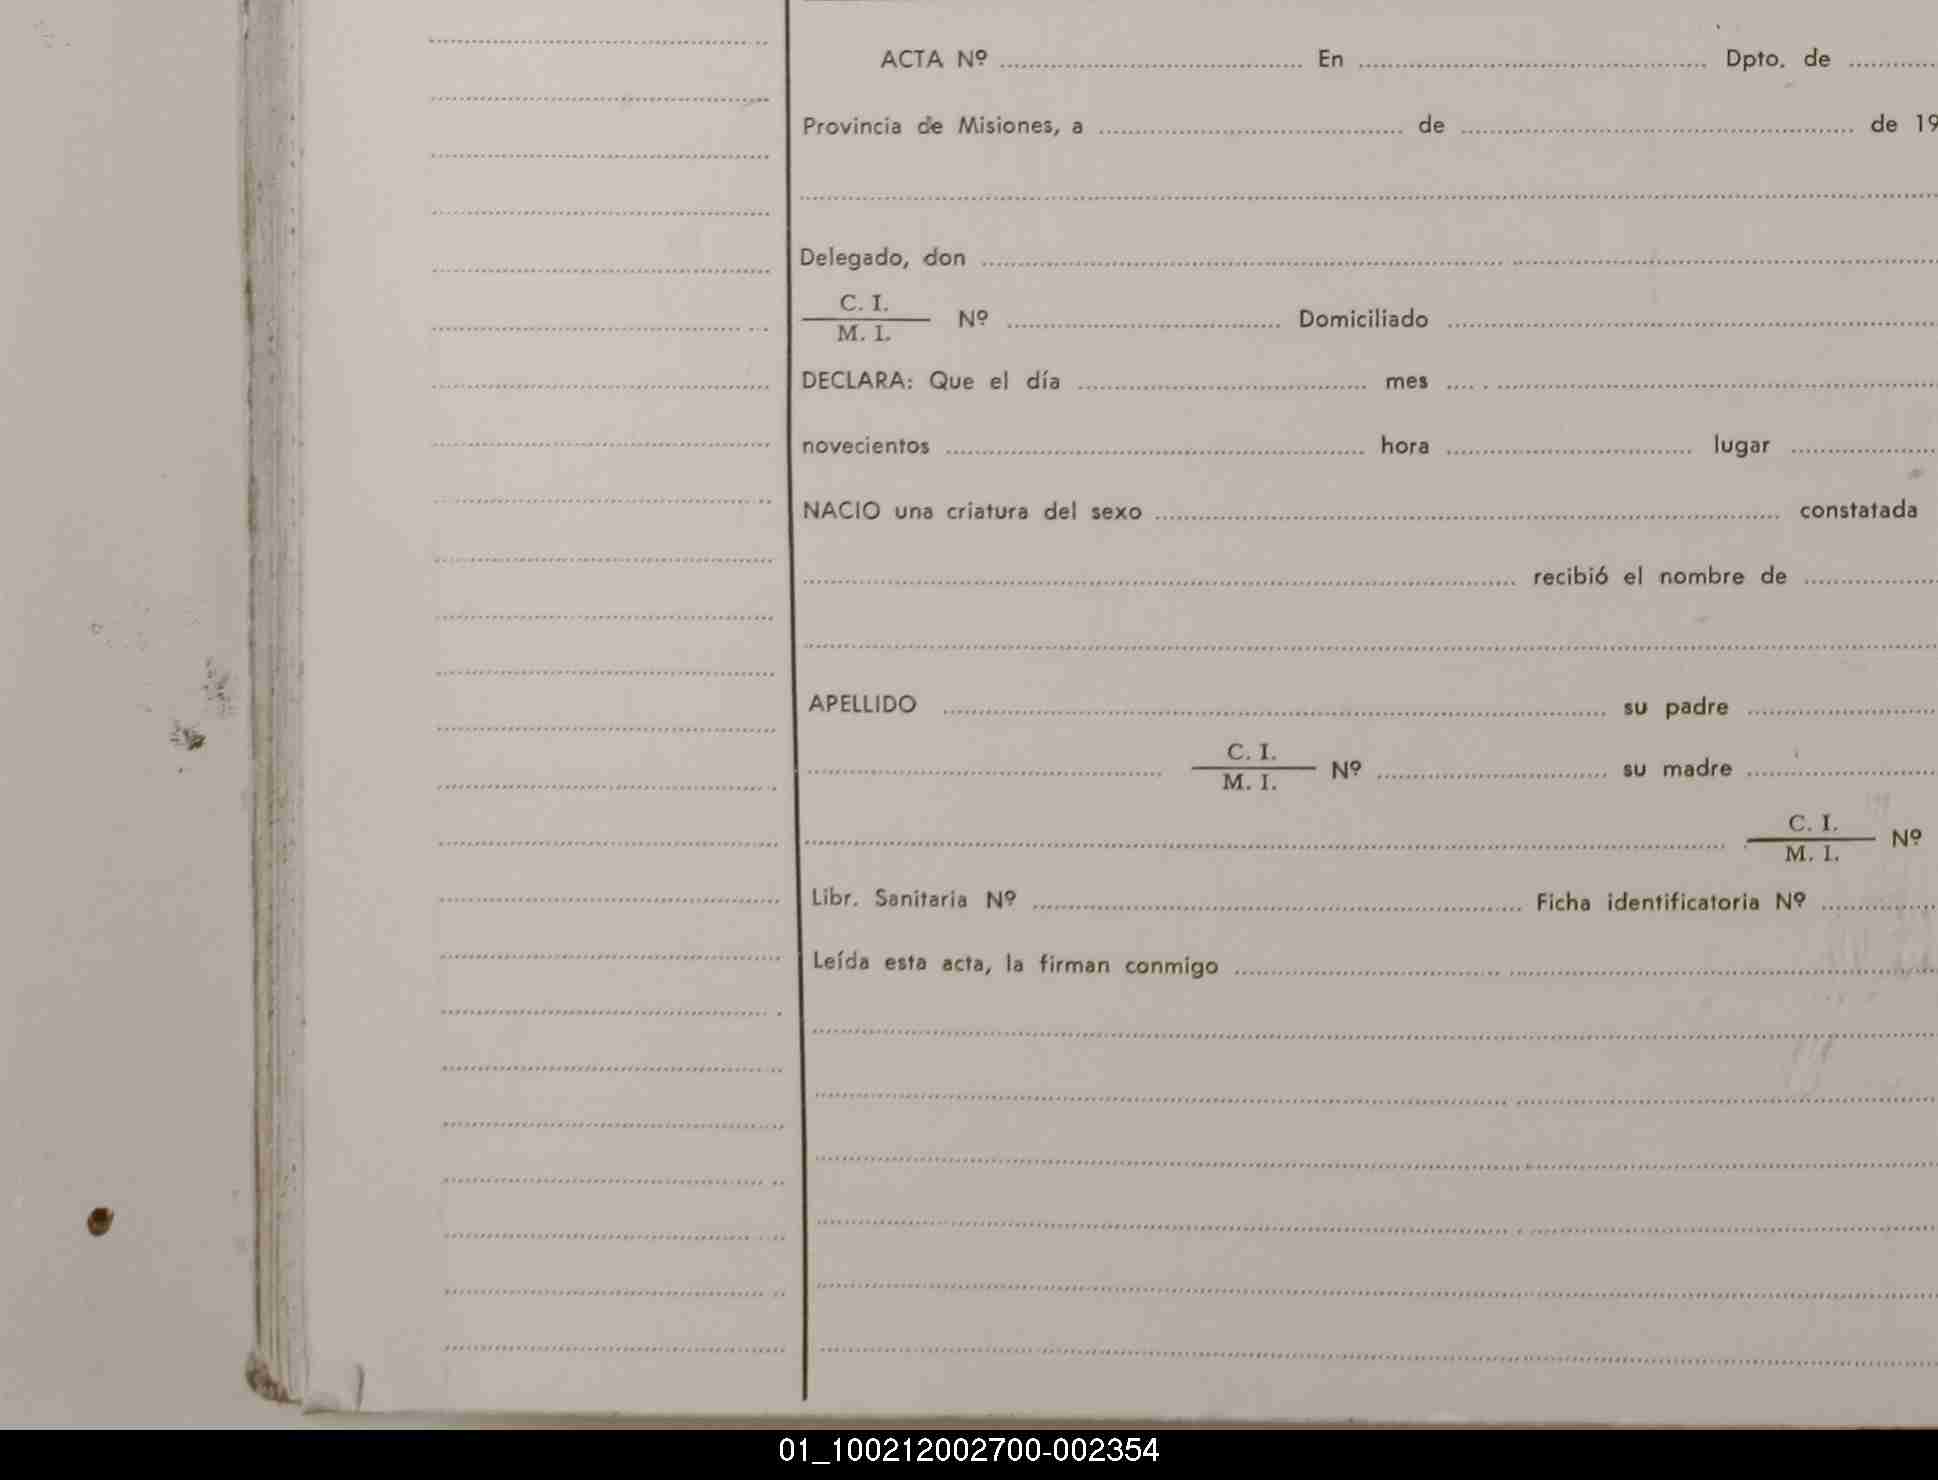 ACTA Nº En Dpto. de
Provincia de Misiones, a de de 19
Delegado, don
C. I.
M. I. Nº Domiciliado
DECLARA: Que el día mes
novecientos hora lugar
NACIO una criatura del sexo constatada
recibió el nombre de
APELLIDO su padre
C. I.
M. I. Nº su madre
C. I.
M. I. Nº
Libr. Sanitaria Nº Ficha identificatoria Nº
Leída esta acta, la firman conmigo
01_100212002700-002354